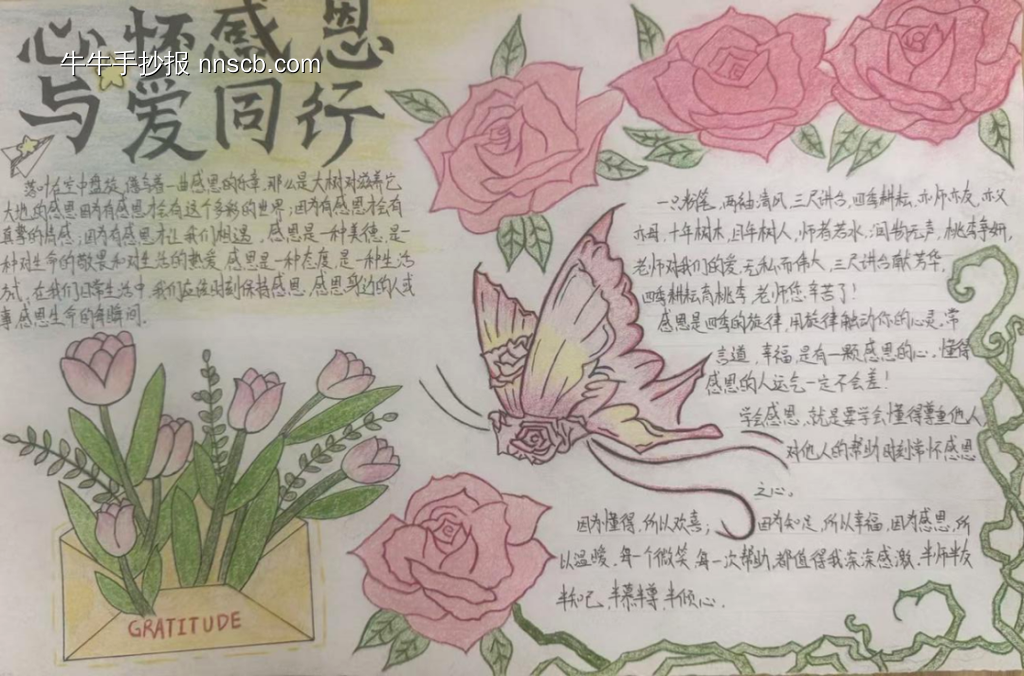 心怀感恩
牛牛手抄报 nnscb.com
与爱同行
落叶在空中盘旋,谱写着一曲感恩的乐章,那么是大树对滋养它
大地的感恩因为有感恩才会有这个多彩的世界;因为有感恩才会有
真挚的情感;因为有感恩才让我们相遇,感恩是一种美德,是一
种对生命的敬畏和对生活的热爱,感恩是一种态度,是一种生活
方式,在我们日常生活中,我们应该时刻保持感恩,感恩身边的人或
事,感恩生命的每瞬间.
一只粉笔,两袖清风,三尺讲台,四季耕耘,亦师亦友,亦父
亦母,十年树木,且年树人,师者若水,润物无声,桃李争妍,
老师对我们的爱,无私而伟大,三尺讲台献芳华,
四季耕耘育桃李,老师您辛苦了!
感恩是四季的旋律,用旋律触动你的心灵,常
言道,幸福,是有一颗感恩的心,懂得
感恩的人运气一定不会差!
学会感恩,就是要学会懂得尊重他人
对他人的帮助时刻常怀感恩
之心。
因为懂得,所以欢喜;因为知足,所以幸福,因为感恩,所
以温暖,每一个微笑,每一次帮助,都值得我亲深感激,半师半友
半知己,半慕半尊半倾心.
GRATITUDE